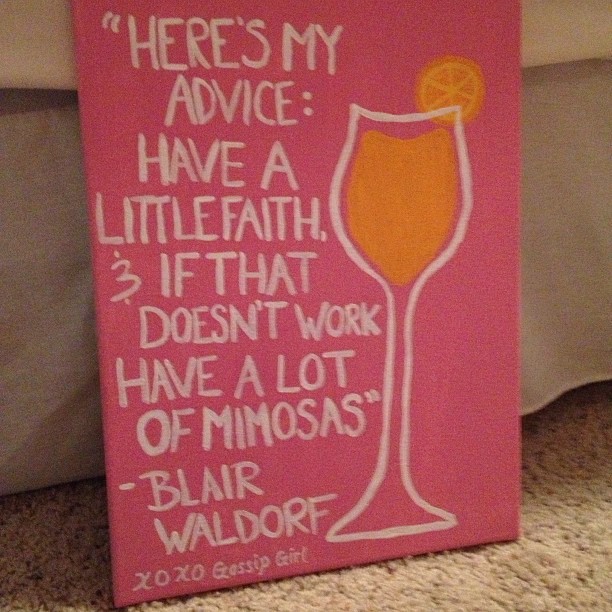 "HERE'S MY
ADVICE:
HAVE A
LITTLE FAITH.
& IF THAT
DOESN'T WORK
HAVE A LOT
OF MIMOSAS"
-BLAIR
WALDORF
XOXO Gossip Girl